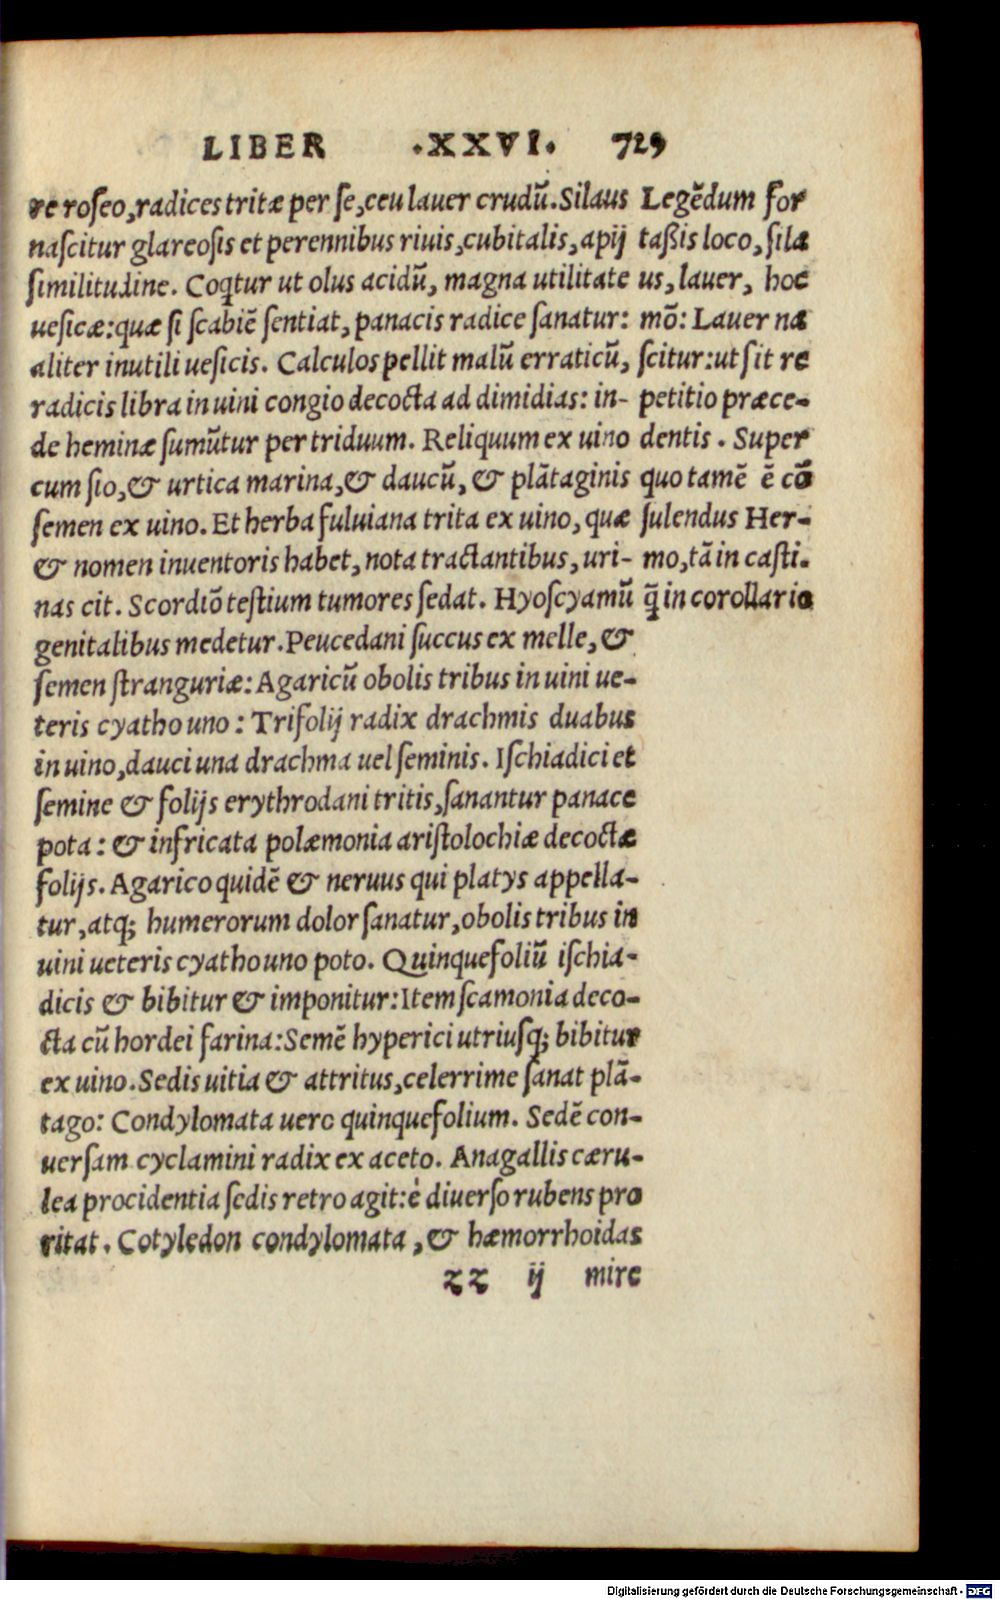 LIBER .XXVI. 729
re roseo, radices tritæ per se, ceu lauer crudū. Silaus
nascitur glareosis et perennibus riuis, cubitalis, apij
similitudine. Coqtur ut olus acidū, magna utilitate
uesicæ: quæ si scabiē sentiat, panacis radice sanatur:
aliter inutili uesicis. Calculos pellit malū erraticū,
radicis libra in uini congio decocta ad dimidias: in-
de heminæ sumūtur per triduum. Reliquum ex uino
cum sio, & urtica marina, & daucū, & plātaginis
semen ex uino. Et herba fuluiana trita ex uino, quæ
& nomen inuentoris habet, nota tractantibus, uri-
nas cit. Scordiō testium tumores sedat. Hyoscyamū
genitalibus medetur. Peucedani succus ex melle, &
semen stranguriæ: Agaricū obolis tribus in uini ue-
teris cyatho uno: Trifolij radix drachmis duabus
in uino, dauci una drachma uel seminis. Ischiadici et
semine & folijs erythrodani tritis, sanantur panace
pota: & infricata polæmonia aristolochiæ decoctæ
folijs. Agarico quidē & neruus qui platys appella-
tur, atq; humerorum dolor sanatur, obolis tribus in
uini ueteris cyatho uno poto. Quinquefoliū ischia-
dicis & bibitur & imponitur: Item scamonia deco-
cta cū hordei farina: Semē hyperici utriusq; bibitur
ex uino. Sedis uitia & attritus, celerrime sanat plā-
tago: Condylomata uero quinquefolium. Sedē con-
uersam cyclamini radix ex aceto. Anagallis cæru-
lea procidentia sedis retro agit: è diuerso rubens pro
ritat. Cotyledon condylomata, & hæmorrhoidas
zz ij mire
Legēdum for
taßis loco, sila
us, lauer, hoc
mō: Lauer na
scitur: ut sit re
petitio præce-
dentis. Super
quo tamē ē cō
sulendus Her-
mo, tā in casti.
q̄ in corollario
Digitalisierung gefördert durch die Deutsche Forschungsgemeinschaft - DFG